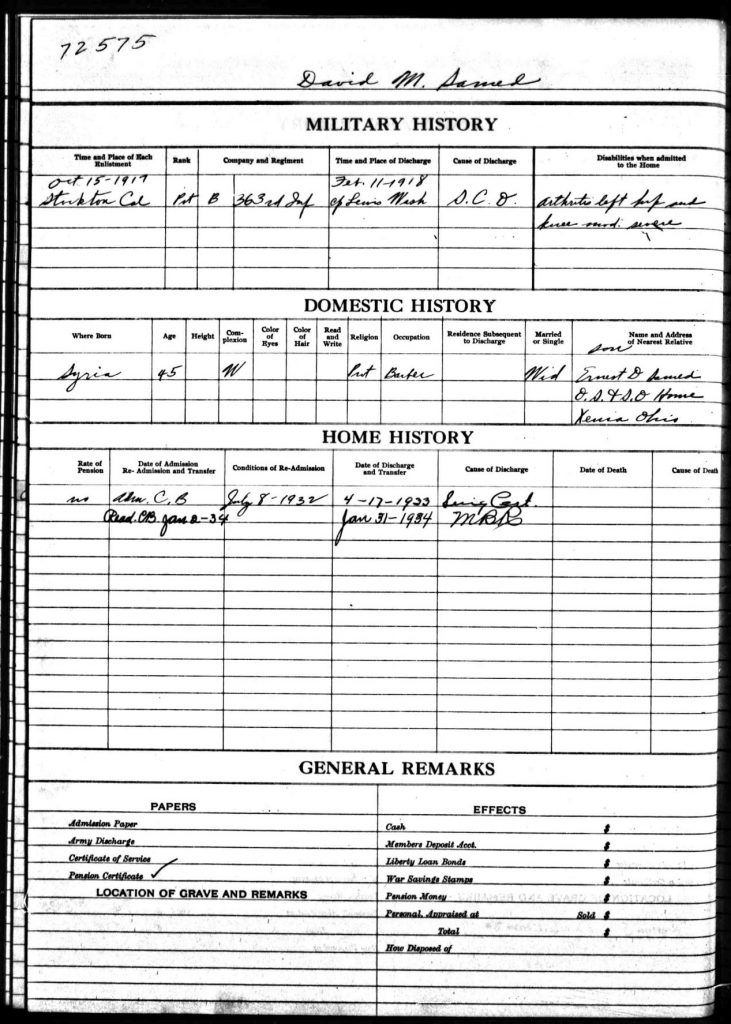 72575
David M. Samed
MILITARY HISTORY
Time and Place of Each Enlistment Rank Company and Regiment Time and Place of Discharge Cause of Discharge Disabilities when admitted to the Home
Oct. 15-1917 Feb. 11-1918
Stockton Cal Pvt B 363rd Inf Lewis Wash S.C.D. arthritis left hip and
knee mod. severe
DOMESTIC HISTORY
Where Born Age Height Complexion Color of Eyes Color of Hair Read and Write Religion Occupation Residence Subsequent to Discharge Married or Single Name and Address of Nearest Relative
son
Syria 45 W Prot Barber Wid Ernest D Samed
O.S.&S.O Home
Xenia Ohio
HOME HISTORY
Rate of Pension Date of Admission Re-Admission and Transfer Conditions of Re-Admission Date of Discharge and Transfer Cause of Discharge Date of Death Cause of Death
no Adm. C.B July 8-1932 4-17-1933
Read. C.B. Jan 2-34 Jan 31-1934
GENERAL REMARKS
PAPERS
EFFECTS
Admission Paper
Cash $
Army Discharge
Members Deposit Acct. $
Certificate of Service
Liberty Loan Bonds $
Pension Certificate ✓
War Savings Stamps $
LOCATION OF GRAVE AND REMARKS
Pension Money $
Personal, Appraised at Sold $
Total $
How Disposed of